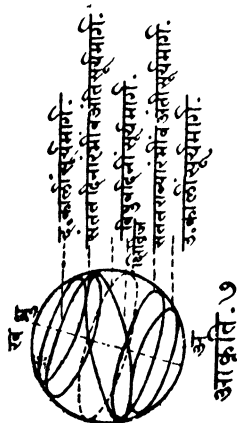 द. कालीं सूर्यमार्ग.
सतत दिनारंभीं व अंतीं सूर्यमार्ग.
विषुवदिनीं सूर्यमार्ग.
क्षितिज
सतत रात्र्यारंभीं व अंतीं सूर्यमार्ग.
उ. कालीं सूर्यमार्ग.
ख
ध्रु
अ
आकृति. ७